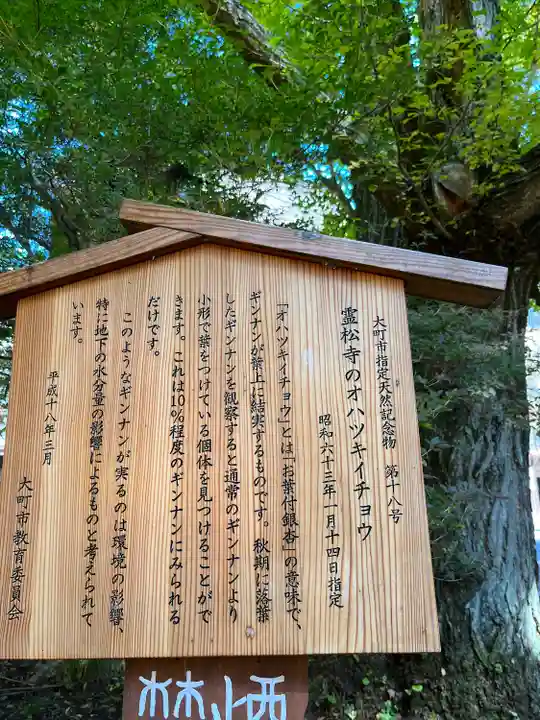 大町市指定天然記念物　第十八号
霊松寺のオハツキイチョウ
昭和六十三年一月十四日指定
「オハツキイチョウ」とは「お葉付銀杏」の意味で、
ギンナンが葉上に結実するものです。秋期に落葉
したギンナンを観察すると通常のギンナンより
小形で葉をつけている個体を見つけることがで
きます。これは10％程度のギンナンにみられる
だけです。
このようなギンナンが実るのは環境の影響、
特に地下の水分量の影響によるものと考えられて
います。
平成十八年三月
大町市教育委員会